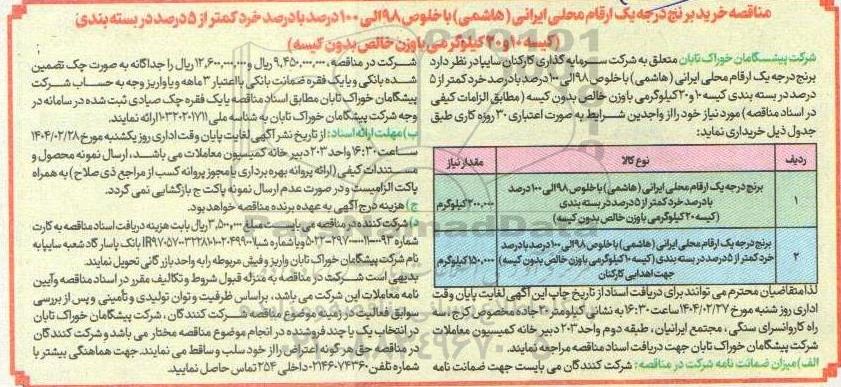 مناقصه خرید برنج درجه یک ارقام محلی ایرانی (هاشمی) با خلوص ۹۸الی ۱۰۰ درصد با درصد خرد کمتر از ۵ درصد در بسته بندی
(کیسه ۱۰ و ۲۰ کیلوگرمی با وزن خالص بدون کیسه)
شرکت پیشگامان خوراک تابان متعلق به شرکت سرمایه گذاری کارکنان سایپا در نظر دارد
برنج درجه یک ارقام محلی ایرانی (هاشمی) با خلوص ۹۸الی ۱۰۰ درصد با درصد خرد کمتر از ۵
درصد در بسته بندی کیسه ۱۰ و ۲۰ کیلوگرمی با وزن خالص بدون کیسه (مطابق الزامات کیفی
در اسناد مناقصه) مورد نیاز خود را از واجدین شرایط به صورت اعتباری ۳۰ روزه کاری طبق
جدول ذیل خریداری نماید:
ردیف نوع کالا مقدار نیاز
۱ برنج درجه یک ارقام محلی ایرانی (هاشمی) با خلوص ۹۸الی ۱۰۰ درصد
با درصد خرد کمتر از ۵ درصد در بسته بندی
(کیسه ۲۰ کیلوگرمی با وزن خالص بدون کیسه) ۲۰۰,۰۰۰ کیلوگرم
۲ برنج درجه یک ارقام محلی ایرانی (هاشمی) با خلوص ۹۸الی ۱۰۰ درصد با درصد
خرد کمتر از ۵ درصد در بسته بندی (کیسه ۱۰ کیلوگرمی با وزن خالص بدون کیسه)
جهت اهدایی کارکنان ۱۵۰,۰۰۰ کیلوگرم
لذا متقاضیان محترم می توانند برای دریافت اسناد از تاریخ چاپ این آگهی لغایت پایان وقت
اداری روز شنبه مورخ ۱۴۰۴/۰۲/۲۷ ساعت ۱۶:۳۰ به نشانی کیلومتر ۲۰ جاده مخصوص کرج، سه
راه کاروانسرای سنگی، مجتمع ایرانیان، طبقه دوم واحد ۲۰۳ دبیرخانه کمیسیون معاملات
شرکت پیشگامان خوراک تابان جهت دریافت اسناد مناقصه مراجعه نمایند.
الف) میزان ضمانت نامه شرکت در مناقصه: شرکت کنندگان می بایست جهت ضمانت نامه
شرکت در مناقصه، ۹,۴۵۰,۰۰۰,۰۰۰ ریال و ۱۲,۶۰۰,۰۰۰,۰۰۰ ریال را جداگانه به صورت چک تضمین
شده بانکی و یا یک فقره ضمانت بانکی با اعتبار ۳ ماهه و یا واریز وجه به حساب شرکت
پیشگامان خوراک تابان مطابق اسناد مناقصه یا یک فقره چک صیادی ثبت شده در سامانه در
وجه شرکت پیشگامان خوراک تابان به شناسه ملی ۱۰۳۲۰۲۰۱۷۱۱ ارائه نمایند.
ب) مهلت ارائه اسناد: از تاریخ نشر آگهی لغایت پایان وقت اداری روز یکشنبه مورخ ۱۴۰۴/۰۲/۲۸
ساعت ۱۶:۳۰ واحد ۲۰۳ دبیرخانه کمیسیون معاملات می باشد، ارسال نمونه محصول و
مستندات کیفی (ارائه پروانه بهره برداری یا مجوز پروانه کسب از مراجع ذی صلاح) به همراه
پاکت الزامیست و در صورت عدم ارسال نمونه پاکت ج بازگشایی نمی گردد.
ج) هزینه درج آگهی به عهده برنده مناقصه خواهد بود.
د) شرکت کننده در مناقصه می بایست مبلغ ۳,۵۰۰,۰۰۰ ریال بابت هزینه دریافت اسناد مناقصه به کارت
شماره و یا شماره شبا بانک پاسارگاد شعبه سایپا به
نام شرکت پیشگامان خوراک تابان واریز و فیش مربوطه را به واحد بازرگانی تحویل نمایند.
بدیهی است شرکت در مناقصه به منزله قبول شروط و تکالیف مقرر در اسناد مناقصه و آیین
نامه معاملات این شرکت می باشد، براساس ظرفیت و توان تولیدی و تأمینی و پس از بررسی
سوابق فعالیت در زمینه موضوع مناقصه شرکت کنندگان، شرکت پیشگامان خوراک تابان
در انتخاب یک یا چند فروشنده در انجام موضوع مناقصه مختار می باشد و شرکت کنندگان
در مناقصه حق هرگونه اعتراض را از خود سلب و ساقط می نمایند. جهت هماهنگی بیشتر با
شماره تلفن ۰۲۱۴۶۰۷۴۳۶۰ داخلی ۲۵۴ تماس حاصل نمایید.